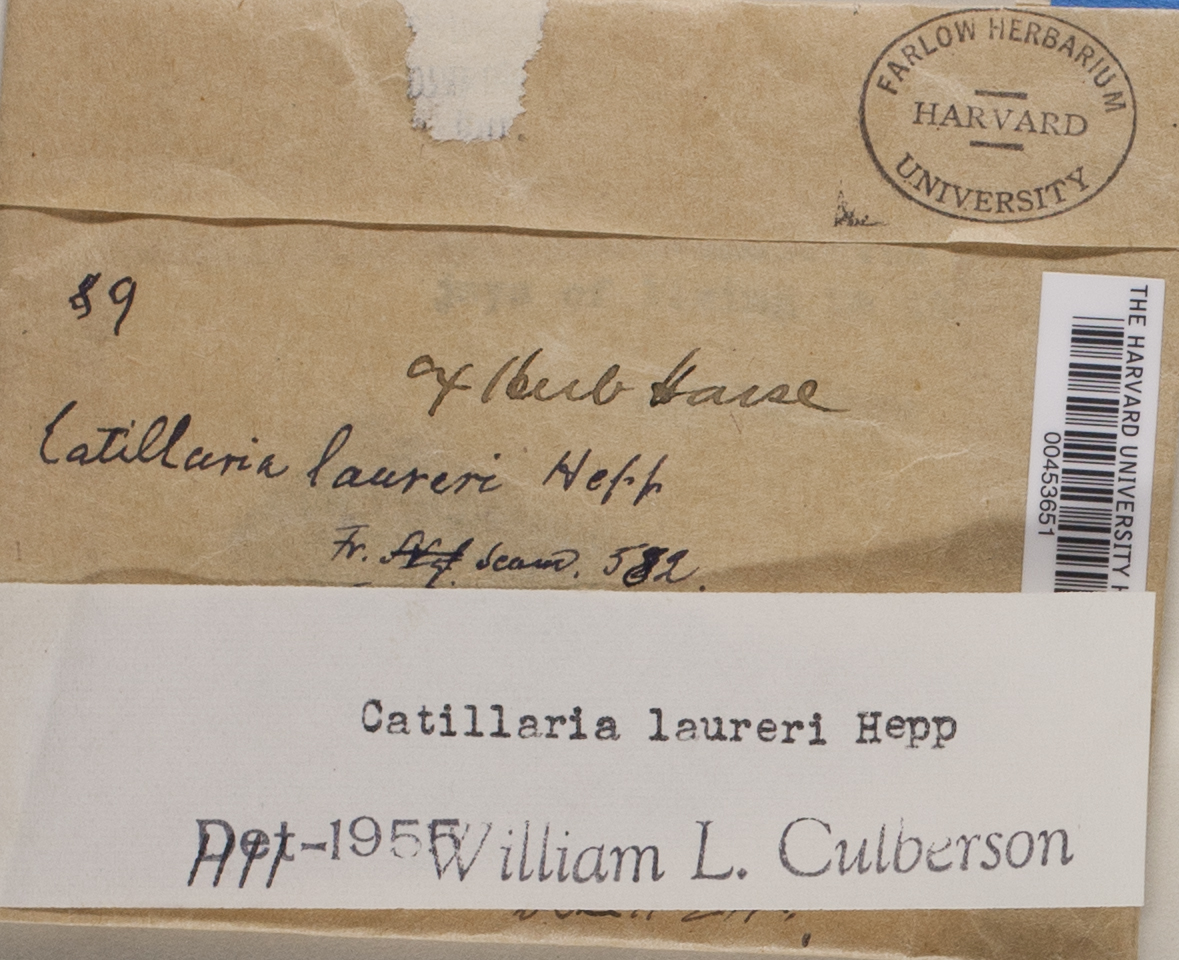 FARLOW HERBARIUM
HARVARD
UNIVERSITY
89
THE HARVARD UNIVERSITY H
00453651
ex Herb Hasse
Catillaria laureri Hepp
Fr. Scand. 582.
Catillaria laureri Hepp
1955 William L. Culberson